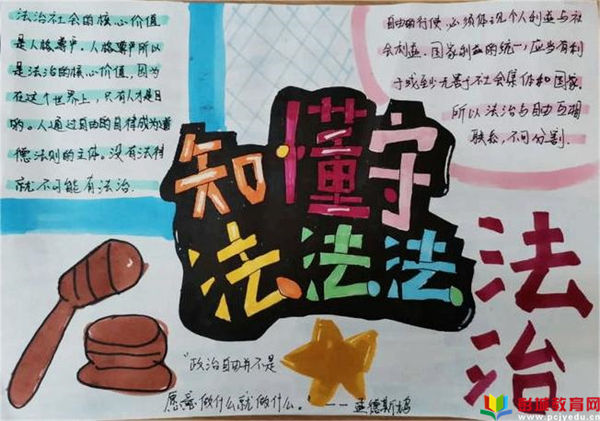 法治社会的核心价值
是人格尊严。人格尊严所以
是法治的核心价值,因为
在这个世界上,只有人才是目
的。人通过自由的自律成为道
德法则的主体。没有法律
就不可能有法治.
自由的行使,必须体现个人利益与社
会利益、国家利益的统一,应当有利
于或至少无害于社会集体和国家.
所以法治与自由互相
联系,不可分割.
知懂守
法法法
法治
"政治自由并不是
愿意做什么就做什么."——孟德斯鸠
彭城教育网
www.pcjyedu.cn